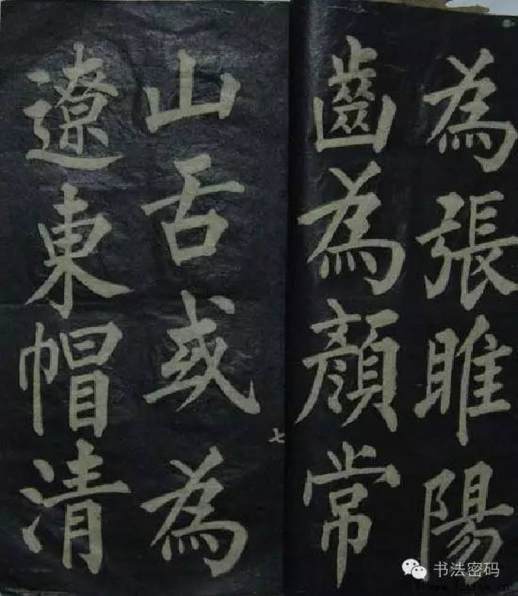 為張睢陽
齒為顏常
山舌或為
遼東帽清
七
书法密码